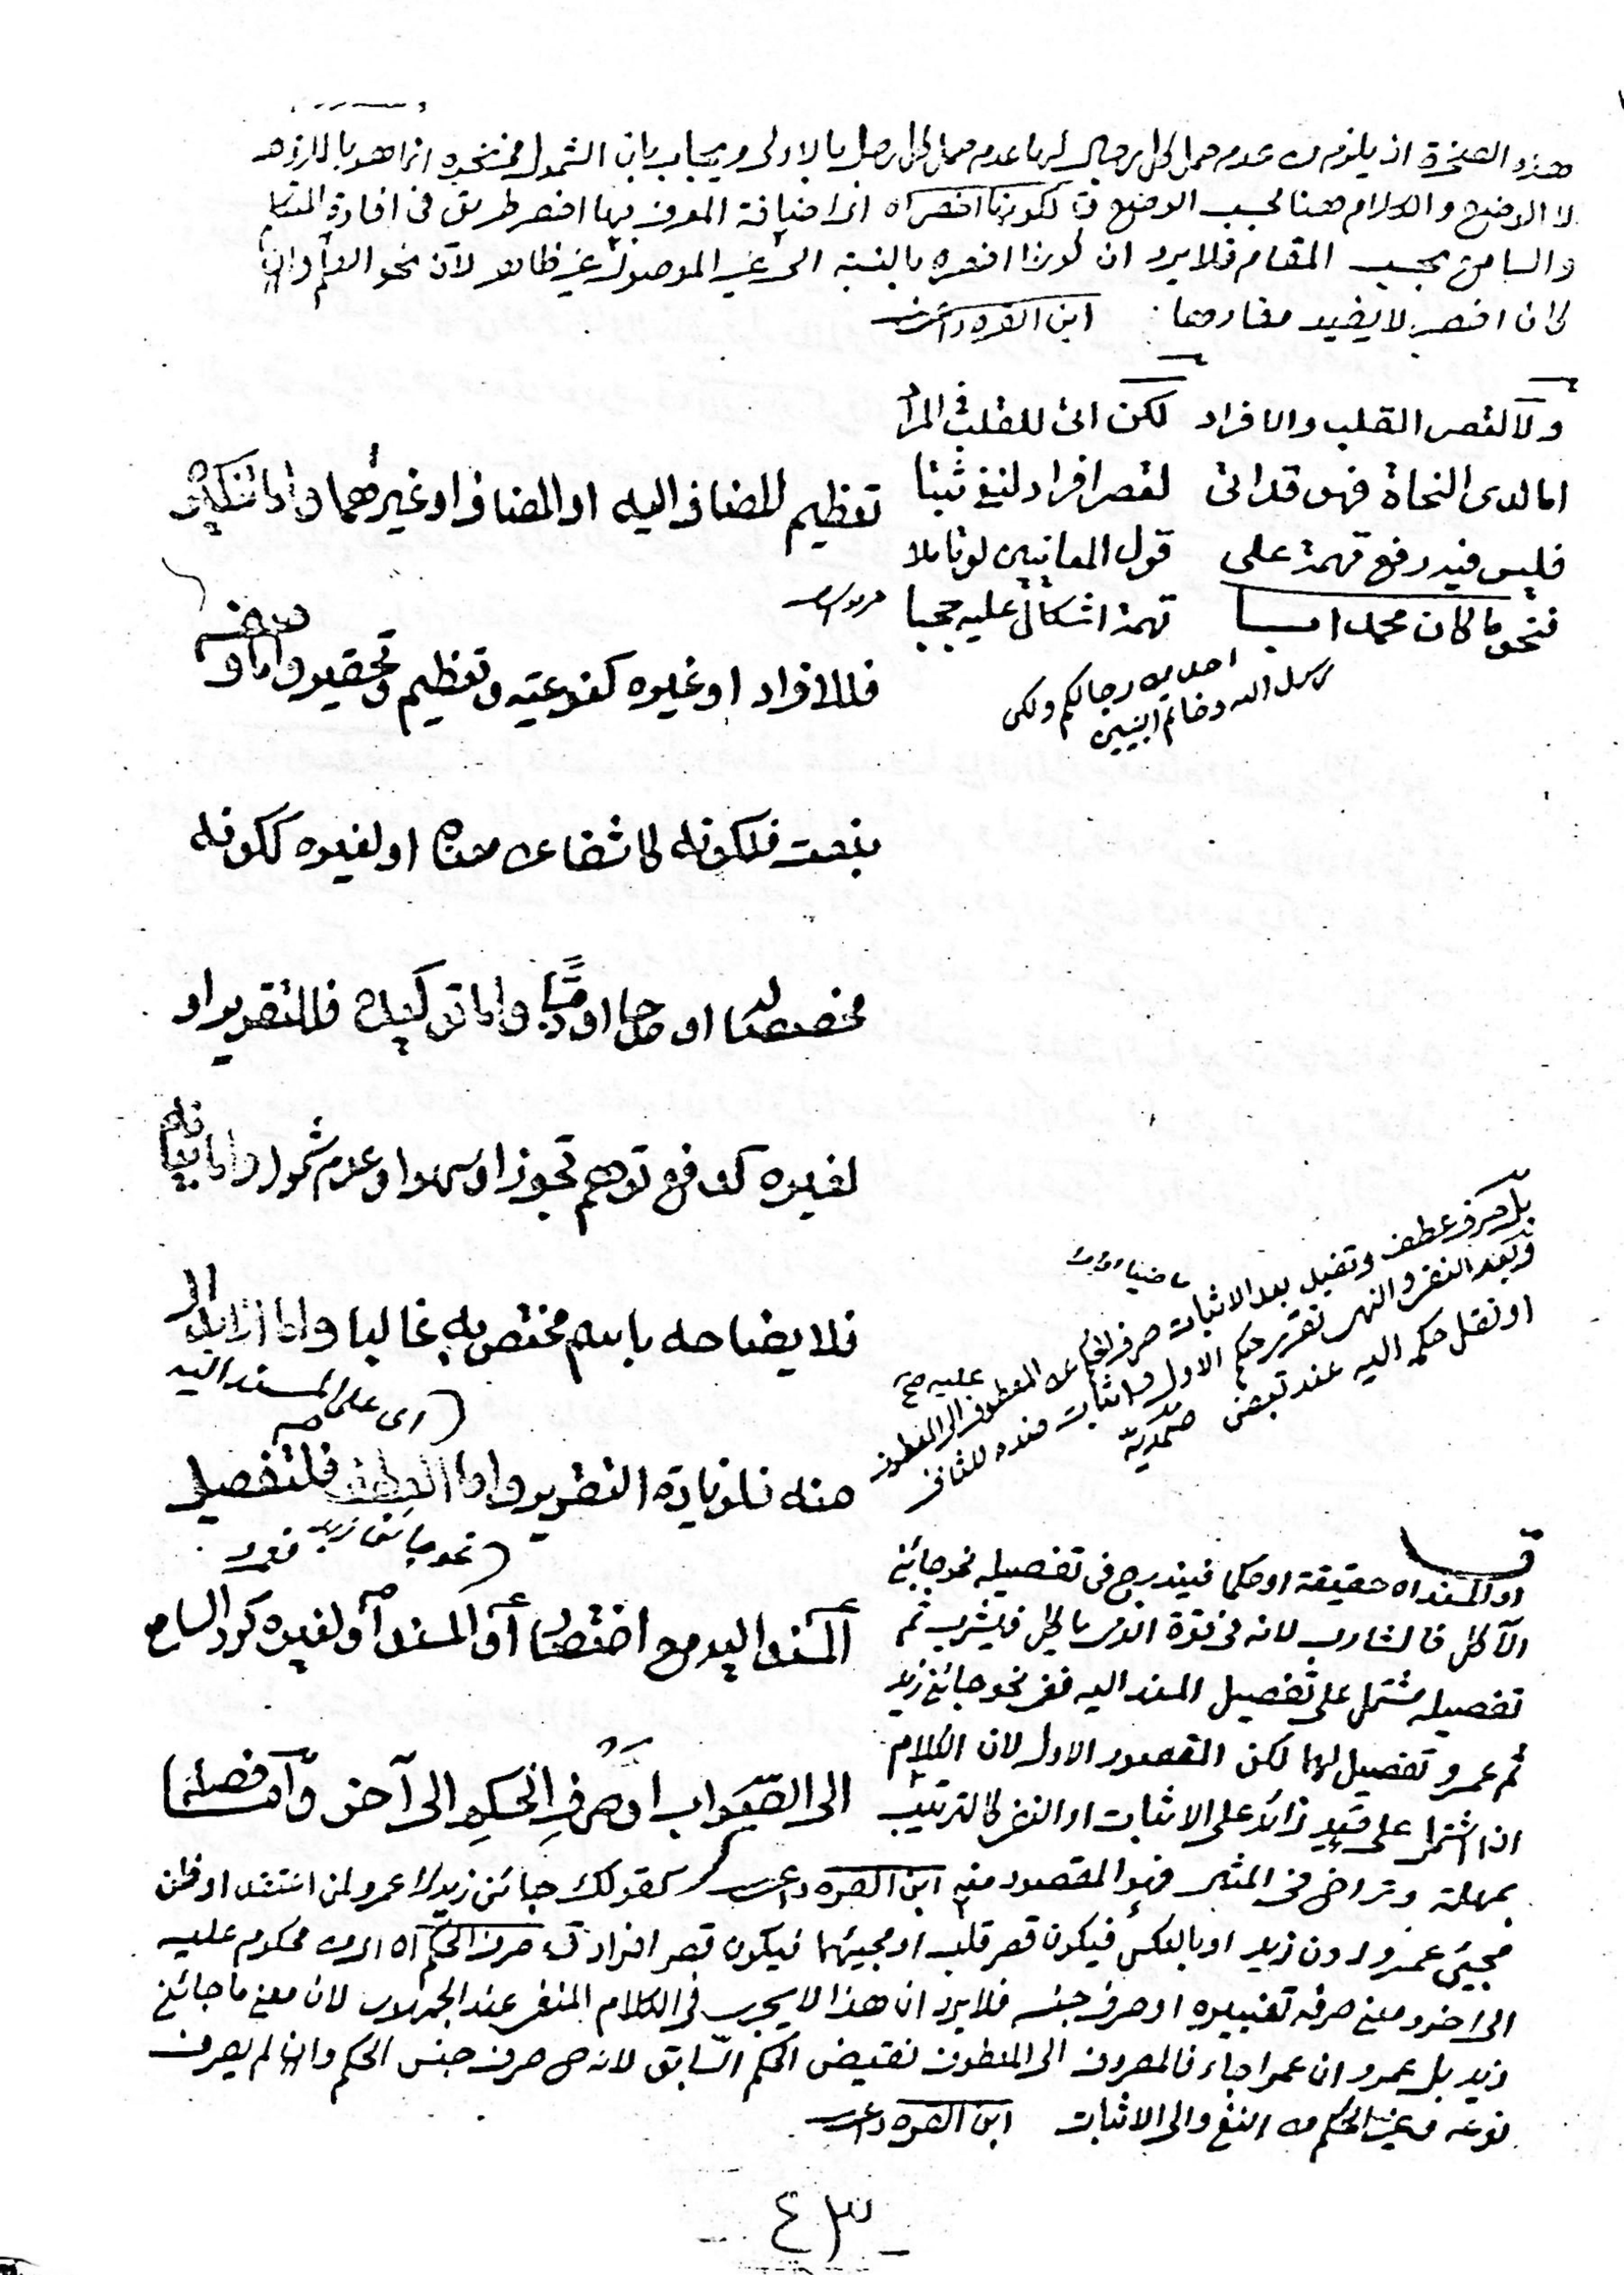 هذه الصخرة اذ يلزم من عدم حمل كل رجال لها عدم حمل كل رجل بالاولى ويجاب بان الشمول في نحوه انما هو باللزوم
لا الوضع والكلام هنا بحسب الوضع ق لكونها اخصر اه اى اضافة المعرف بها اخصر طريق فى افادة المتكلم
والسامع بحسب المقام فلا يرد ان كونها اخصر بالنسبة الى غير الموصول غير ظاهر لان نحو العلم وان
كان اخصر لا يفيد مفادها ابن القره داغى
ولا لقصر القلب والافراد لكن اتى للقلب فى المرا
اما لدى النحاة فهى قد اتى لقصر افراد لنفى ثبتا
فليس فيه رفع تهمة على قول المعانيين لو تاملا
فنحو ما كان محمد ابا تهمة اشكال عليه حجبا
احد من رجالكم ولكن
رسول الله وخاتم النبيين
تعظيم المضاف اليه او المضاف او غيرهما واما تنكيره
فللافراد او غيره كنوعية وتعظيم وتحقير واما وصفه
بنعت فلكونه كاشفا عن معناه او لغيره ككونه
مخصصا او مدحا او ذما واما توكيده فللتقرير او
لغيره كدفع توهم تجوز او سهو او عدم شمول واما بيانه
فلايضاحه باسم مختص به غالبا واما الابدال
منه فلزيادة التقرير واما العطف فلتفصيل
(اى على المسند اليه
(نحو جائنى زيد فعمرو
المسند اليه مع اختصار او المسند او لغيره كرد السامع
الى الصواب او صرف الحكم الى آخر واما فصله
بل حرف عطف وتفيد بعد الاثبات صرف الحكم عن المعطوف عليه الى المعطوف
وبعد النفى والنهى تقرير حكم الاول واثبات ضده للثانى
او نقل حكمه اليه عند بعض صمدية
او المسند اه حقيقة او حكما فيندرج فى تفصيله نحو جائنى
الآكل فالشارب لانه فى قوة الذى ياكل فيشرب ثم
تفصيله مشتمل على تفصيل المسند اليه ففى نحو جائنى زيد
ثم عمرو تفصيل لهما لكن المقصود الاول لان الكلام
اذا اشتمل على قيد زائد على الاثبات او النفى كالترتيب
بمهلة وتراخ فى المثبت فهو المقصود منه ابن القره داغى كقولك جائنى زيد لا عمرو لمن اعتقد او ظن
مجيئ عمرو دون زيد او بالعكس فيكون قصر قلب او مجيئهما فيكون قصر افراد ق صرف الحكم اه اى من محكوم عليه
الى اخر ومعنى صرفه تغييره او صرف جنسه فلا يرد ان هذا لا يجرى فى الكلام المنفى عند الجمهور لان معنى ما جائنى
زيد بل عمرو ان عمرا جاء فالمصروف الى المعطوف نقيض الحكم السابق لانه ح صرف جنس الحكم وان لم يصرف
نوعه وغير الحكم من النفى الى الاثبات ابن القره داغى
ـ ٤٣ ـ